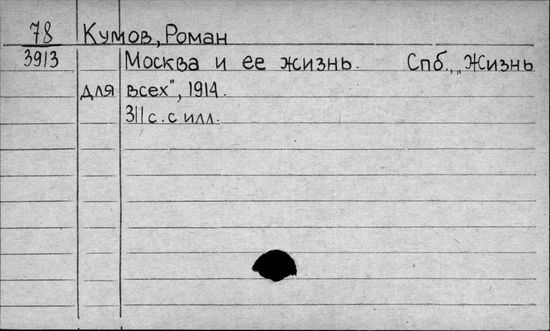 78 Кумов, Роман
3913 Москва и ее жизнь. Спб., „Жизнь
для всех", 1914.
311 с. с илл.